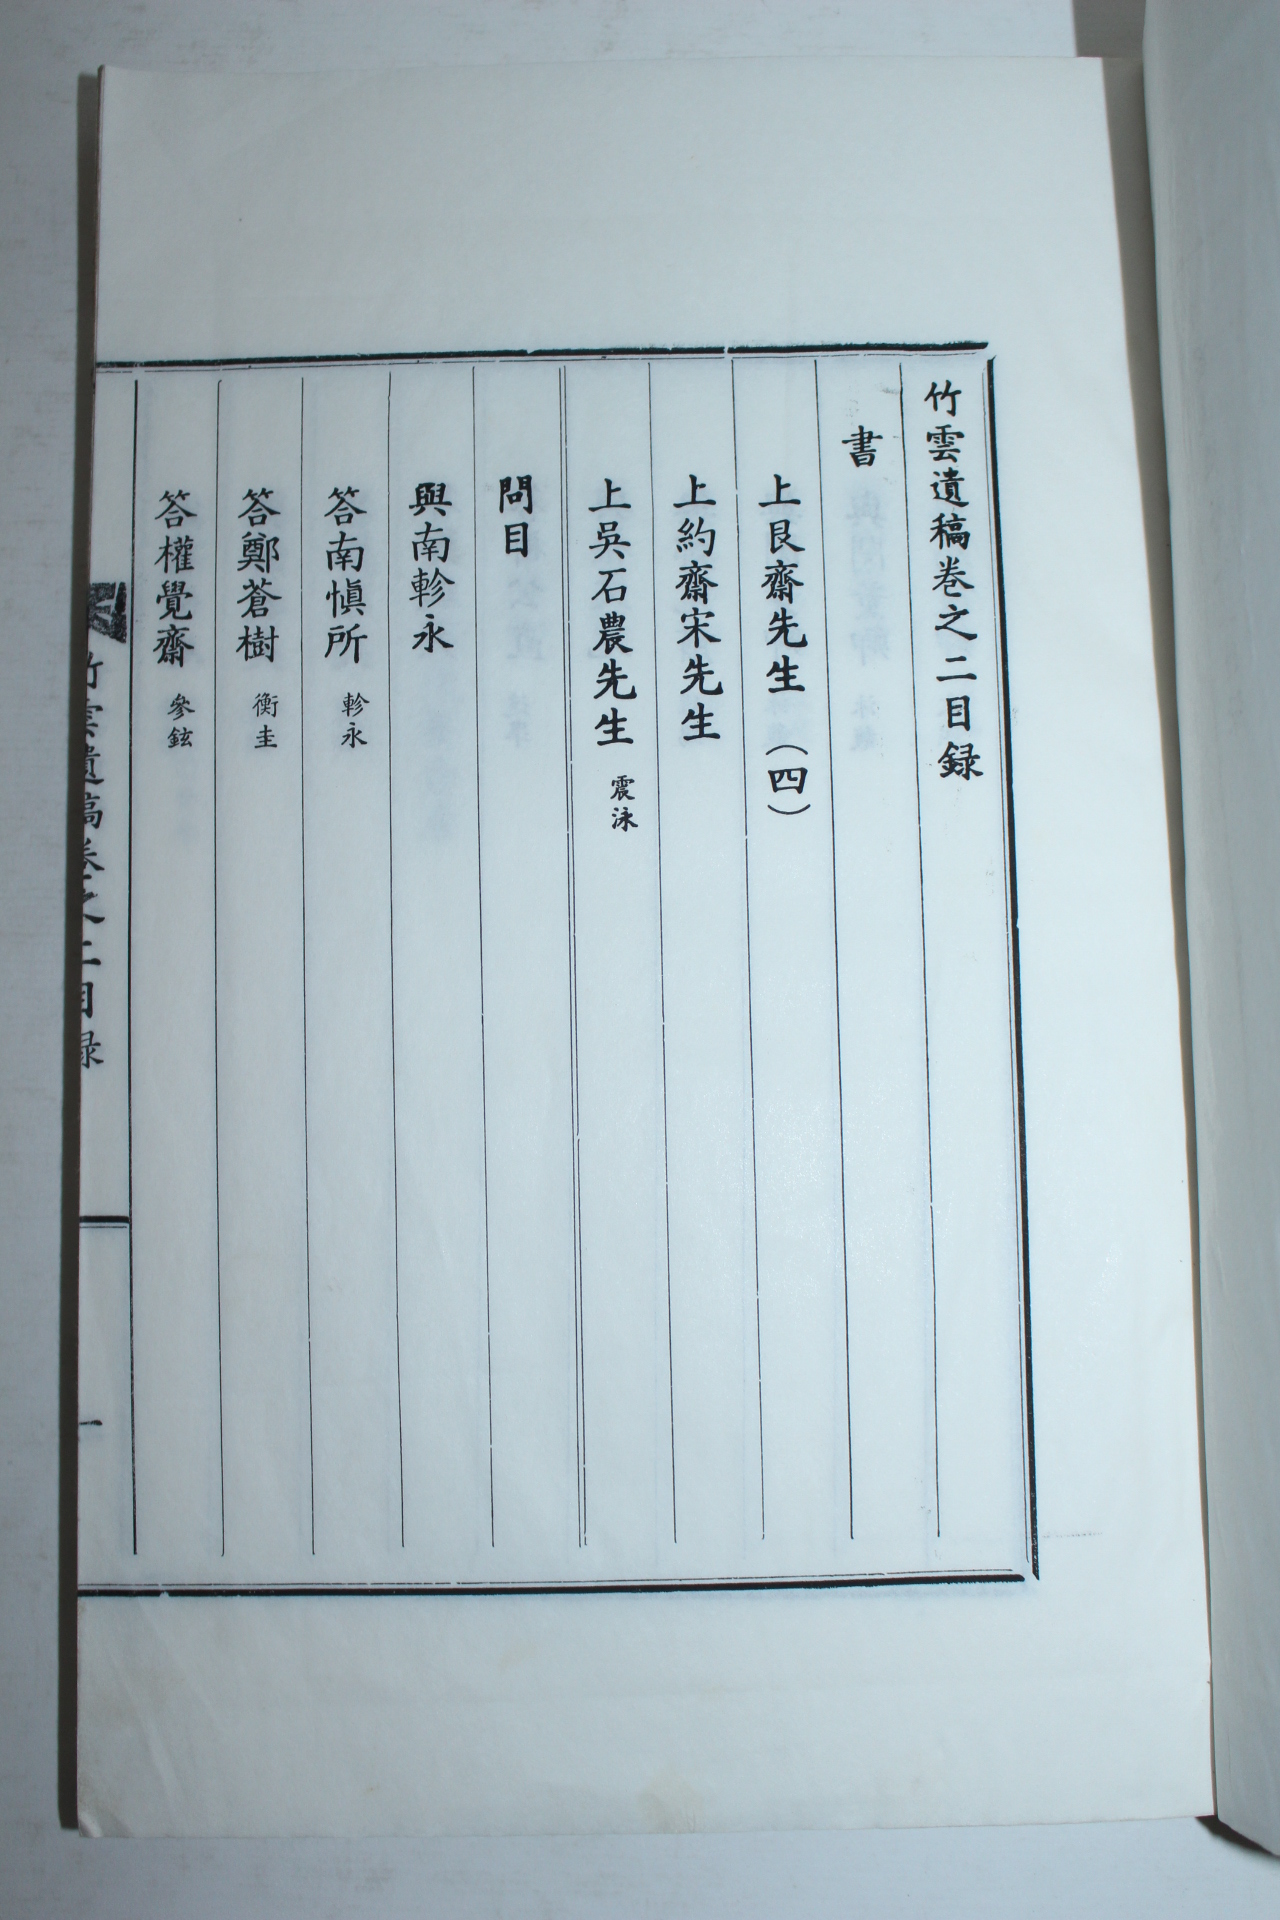 竹雲遺稿卷之二目録
書
上艮齋先生(四)
上約齋宋先生
上吳石農先生 震泳
問目
與南軫永
答南愼所 軫永
答鄭蒼樹 衡圭
答權覺齋 參鉉
竹雲遺稿卷之二目録
一